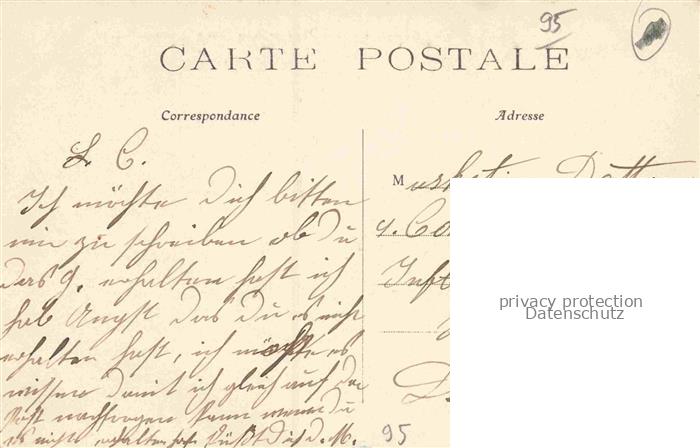 95
CARTE POSTALE
Correspondance
Adresse
L. C.
Ich möchte Dich bitten
mir zu schreiben ob Du
das g. erhalten hast ich
hab Angst das Du es nicht
erhalten hast, ich möchte es
wissen damit ich gleich auf der
Post nachfragen kann wenn Du
es nicht erhalten hast küßt Dich d. M.
M
4. Co
Inft
privacy protection
Datenschutz
95